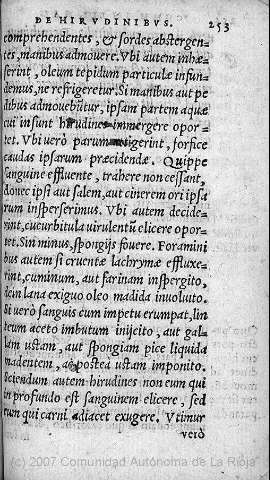 DE HIRVDINIBVS. 253
comprehendentes, & sordes absterGen-
tes, manibus admouere. Vbi autem inhæ-
serint, oleum tepidum particulæ infun-
demus, ne refrigeretur. Si manibus aut pe-
dibus admouebũtur, ipsam partem aquæ
cui insunt hirudines immergere opor-
tet. Vbi verò parum exigerint, forfice
caudas ipsarum præcidendæ. Quippe
sanguine effluente, trahere non cessant,
donec ipsi aut salem, aut cinerem ori ipsa
rum insperserimus. Vbi autem decide-
rint, cucurbitula virulentũ elicere opor-
tet. Sin minus, spongijs fouere. Foramini
bus autem si cruentæ lachrymæ effluxe-
rint, cuminum, aut farinam inspergito,
dein lana exiguo oleo madida inuoluito.
Si verò sanguis cum impetu erumpat, lin
teum aceto imbutum inijcito, aut gal-
lam ustam, aut spongiam pice liquida
madentem, ac postea ustam imponito.
Sciendum autem hirudines non eum qui
in profundo est sanguinem elicere, sed
eum qui carni adiacet exugere. Vtimur
verò
(c) 2007 Comunidad Autónoma de La Rioja